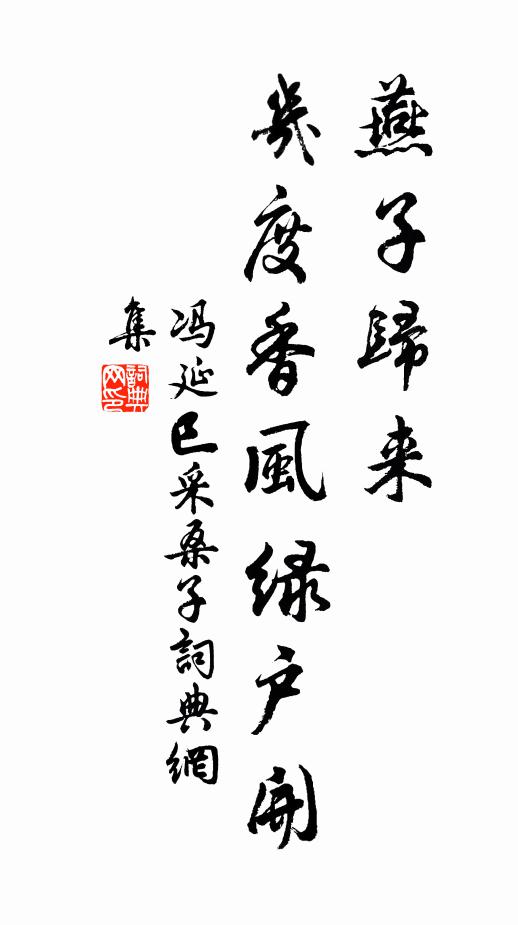 燕子歸来
幾度香風绿户開
冯延巳采桑子詞典網
集
詞典
网印